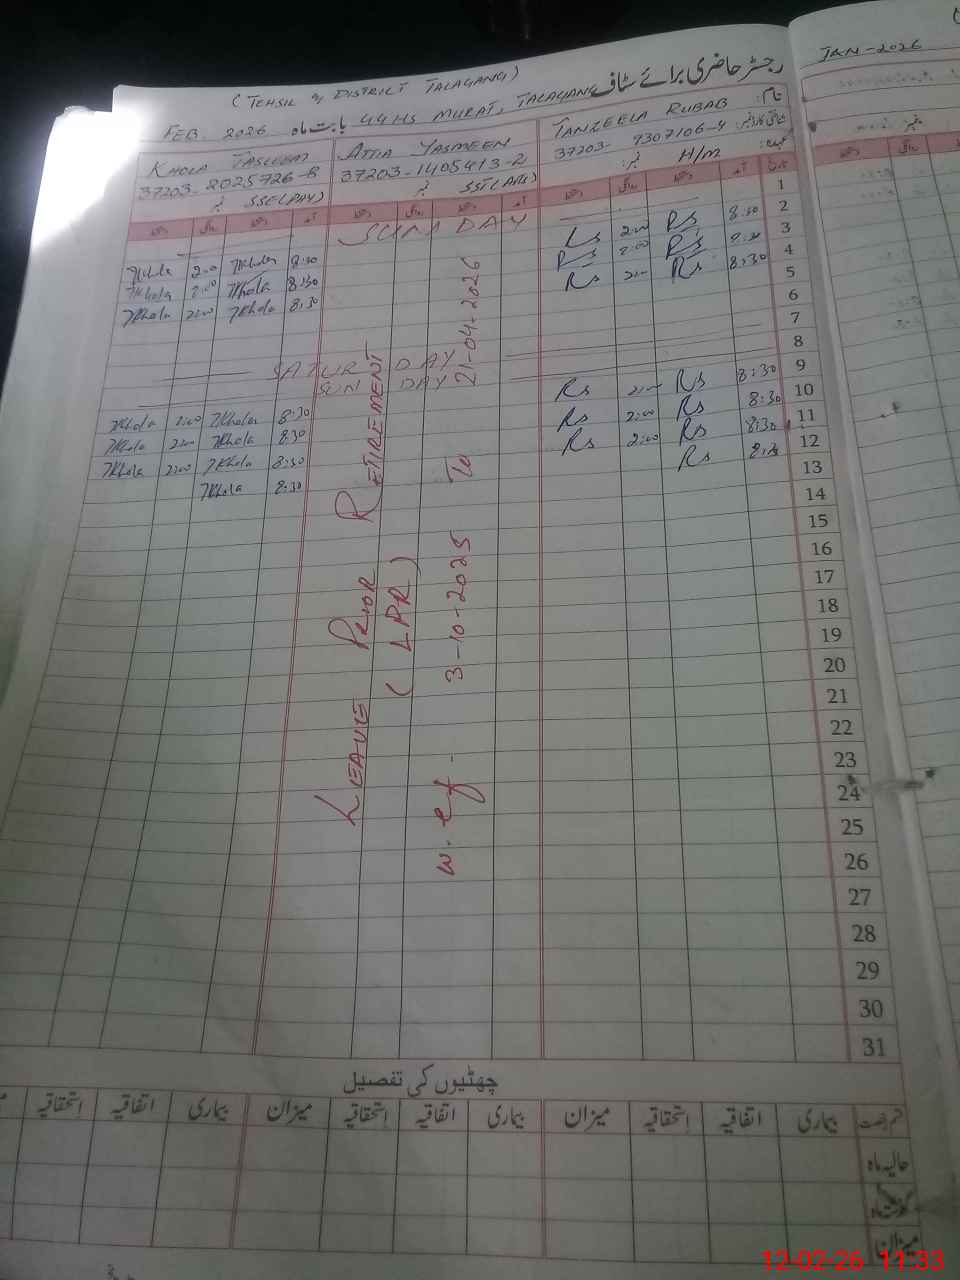 JAN-2026
(TEHSIL & DISTRICT TALAGANG)
رجسٹر حاضری برائے سٹاف
FEB. 2026 بابت ماہ GGHS MURAT, TALAGANG
KHOLA TASLEEM ATTIA YASMEEN TANZEELA RUBAB نام:
37203-2025726-8 37203-1405413-2 37203-9307106-4
SSE(PAY) نمبر SST(ARTS) نمبر H/m نمبر: عہدہ:
1 SUNDAY
2 Khola 2:00 Khola 8:30 Rs 2:00 Rs 8:30
3 Khola 2:00 Khola 8:30 Rs 2:00 Rs 8:30
4 Khola 2:00 Khola 8:30 Rs 2:00 Rs 8:30
5
6
7 SATURDAY
8 SUNDAY
9 Khola 2:00 Khola 8:30 Rs 2:00 Rs 8:30
10 Khola 2:00 Khola 8:30 Rs 2:00 Rs 8:30
11 Khola 2:00 Khola 8:30 Rs 2:00 Rs 8:30
12 Khola 8:30 Rs 8:30
13
14
15
16
17
18
19
20
21
22
23
24
25
26
27
28
29
30
31
LEAVE PRIOR RETIREMENT
(LPR)
w.ef. 3-10-2025 To 21-04-2026
چھٹیوں کی تفصیل
قسم رخصت بیماری اتفاقیہ استحقاقیہ میزان بیماری اتفاقیہ استحقاقیہ میزان بیماری اتفاقیہ استحقاقیہ
حالیہ ماہ
گذشتہ ماہ
میزان
12-02-26 11:33